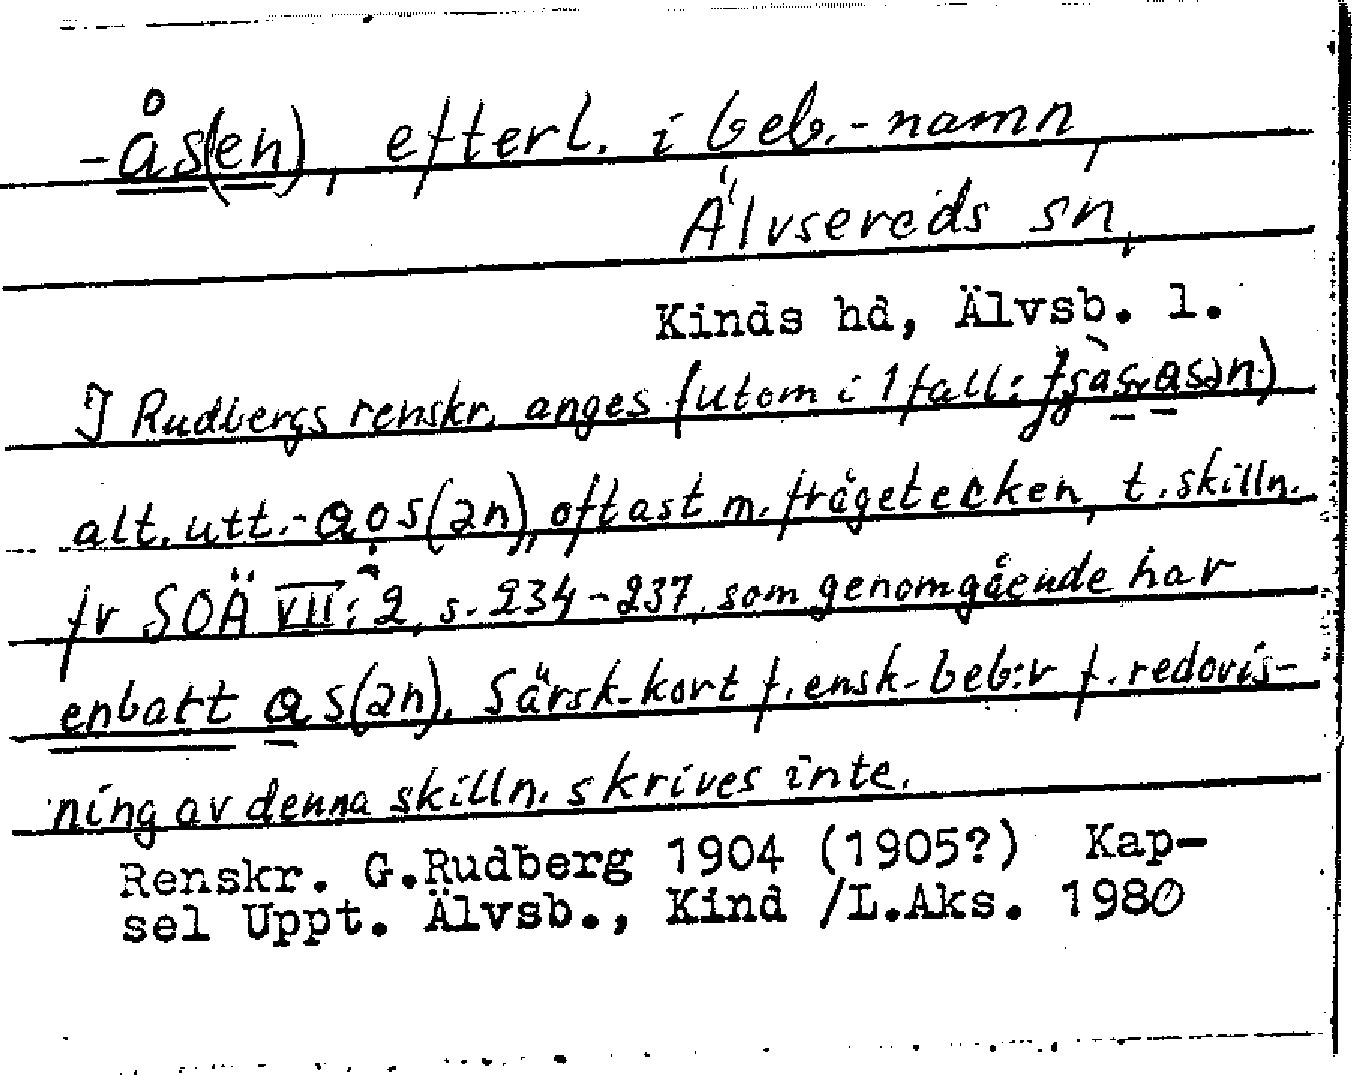 -ås(en), efterl. i beb.-namn,
Älvsereds sn,
Kinds hd, Älvsb. l.
I Rudbergs renskr. anges (utom i 1 fall:
alt. utt. -ɑo̯s(ən), oftast m. frågetecken, t. skilln.
fr SOÄ VII:2, s. 234-237, som genomgående har
enbart ɑs(ən). Särsk. kort f. ensk. beb:r f. redovis-
ning av denna skilln. skrives inte.
Renskr. G.Rudberg 1904 (1905?) Kap-
sel Uppt. Älvsb., Kind /L.Aks. 1980